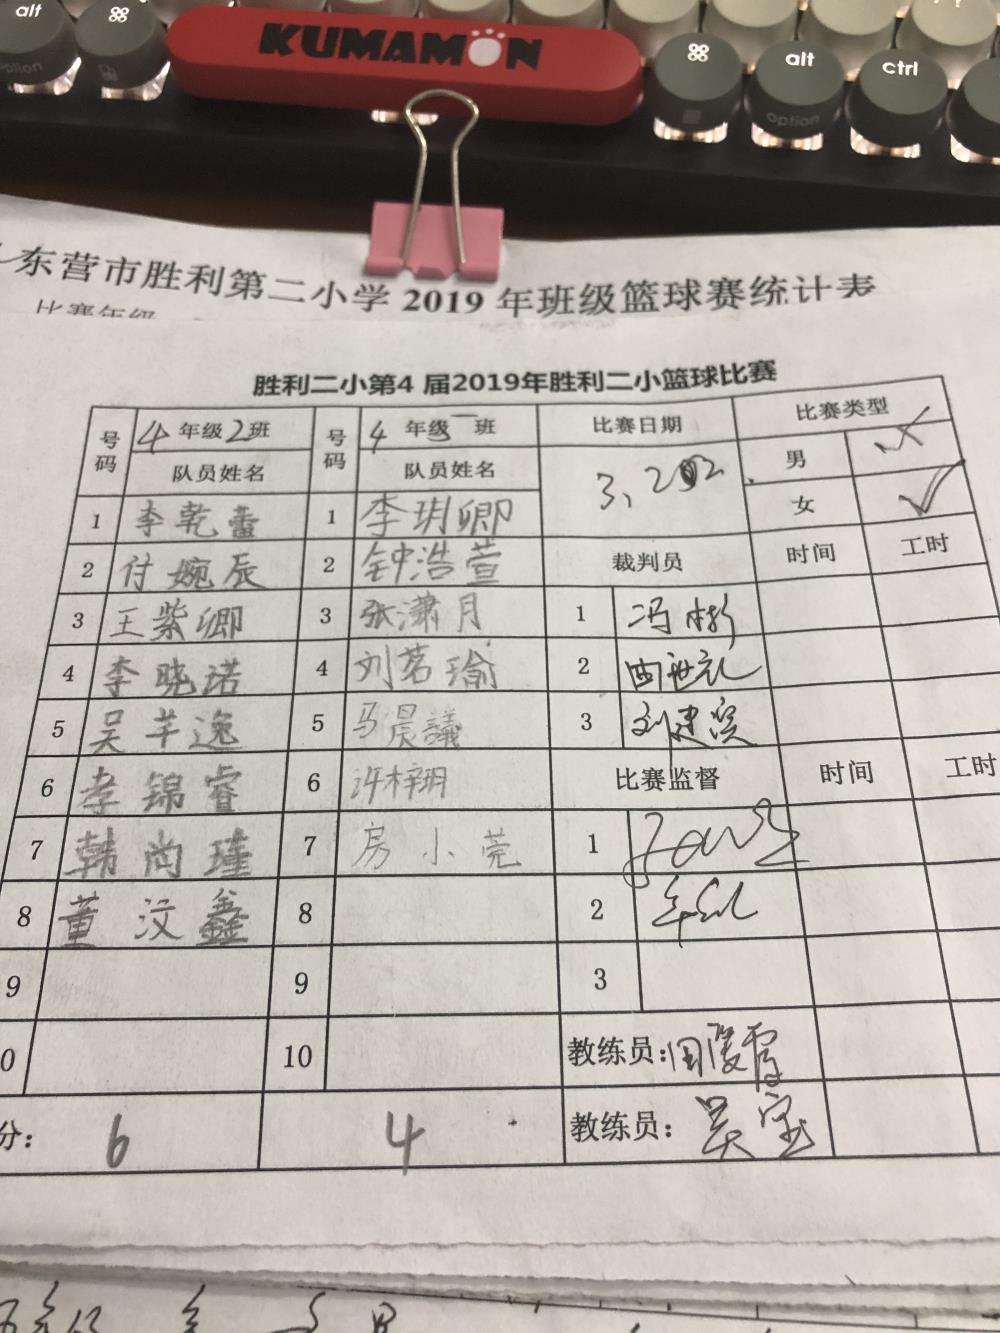 alt
⌘
option
KUMAMON
⌘
alt
option
ctrl
东营市胜利第二小学2019年班级篮球赛统计表
比赛年级
胜利二小第4 届2019年胜利二小篮球比赛
号码 4 年级 2 班 号码 4 年级 一 班 比赛日期 比赛类型
队员姓名 队员姓名 男
女 ✓
1 李乾蕾 1 李玥卿
2 付婉辰 2 钟浩萱 裁判员 时间 工时
3 王紫卿 3 张潇月 1 冯彬
4 李晓诺 4 刘茗瑜 2
5 吴芊逸 5 马晨議 3 刘建宾
6 李锦睿 6 许梓玥 比赛监督 时间 工时
7 韩尚瑾 7 房小莞 1
8 董汶鑫 8 2
9 9 3
0 10 教练员:
分: 6 4 教练员: